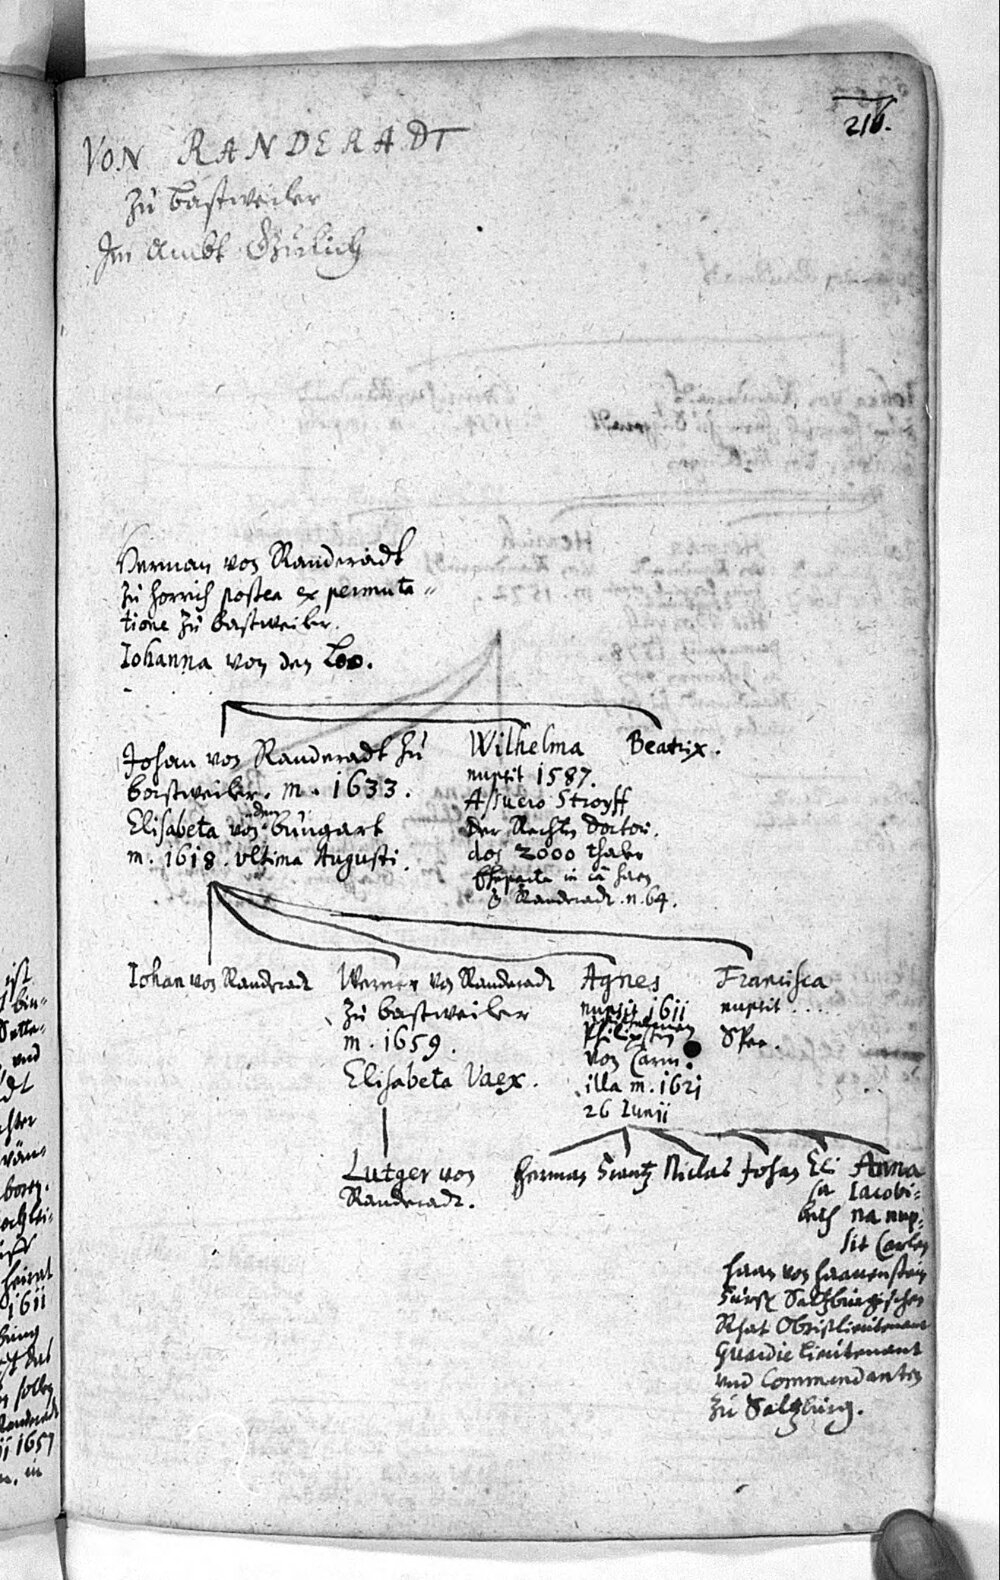 216.
VON RANDERADT
Zu bastweiler
Im Ambt Gulich
Herman von Randeradt
zu horrich postea ex permuta=
tione zu bastweiler.
Iohanna von den Loo.
Johan von Randeradt zu
borstweiler. m. 1633.
Elisabeta von den bungart
m. 1618. ultima Augusti.
Wilhelma
nupsit 1587.
Assuero Stroyff
der Rechten Doctor.
dos 2000 thaler
in
Randeradt. n. 64.
Beatrix.
Iohan von Randeradt
Werner von Randeradt
zu bastweiler
m. 1659.
Elisabeta Vaex.
Agnes
nupsit 1611
Philip
von
illa m. 1621
26 Iunii
Francisca
nupsit ....
Spee.
Lutger von
Randeradt.
Herman Frantz Niclas Johan Eli
sa
beth
Anna
Iacobi=
na nup=
sit Carlen
haan von haanenstein
Furstl Saltzburgischen
Rhat Obristlieutenant
Guardie Lieutenant
und Commendanten
zu Saltzburg.
ist
und
1611
sollen
Randeradt
1657
in